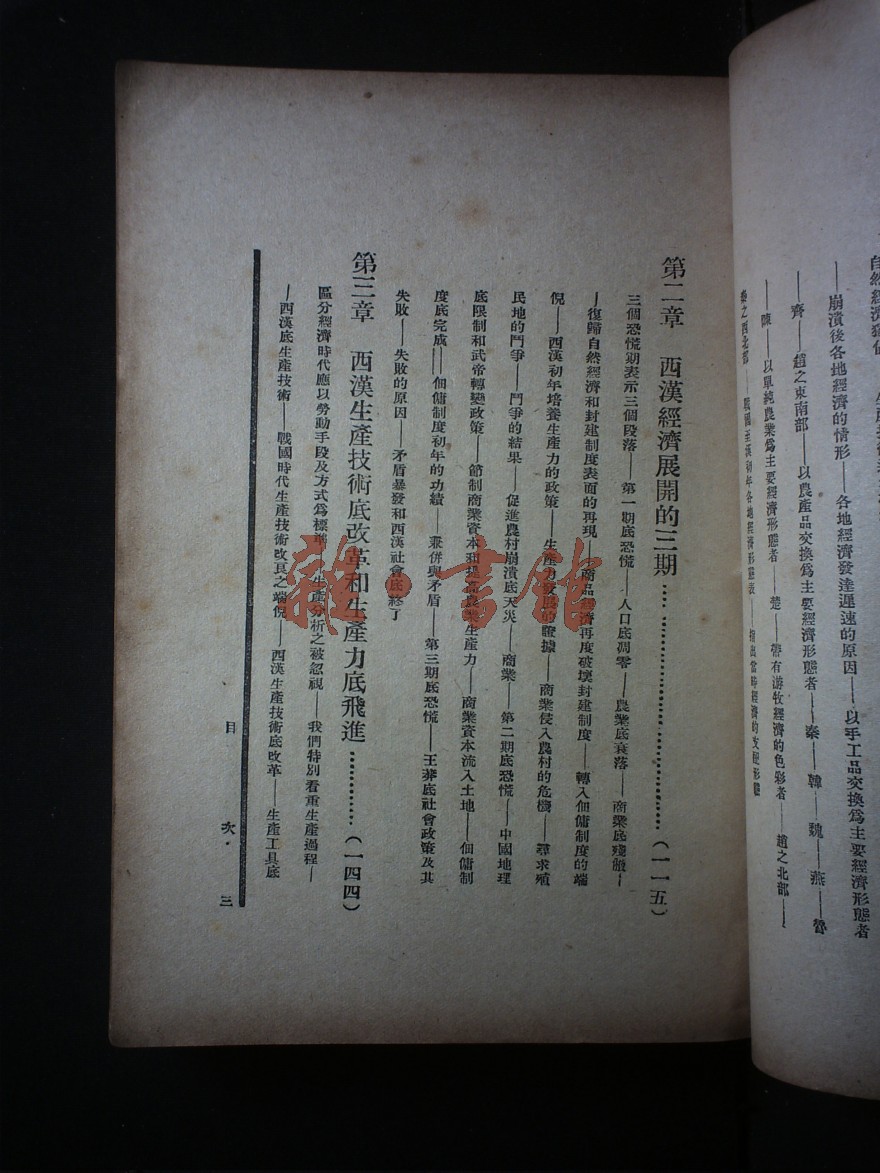 自然經濟
崩潰後各地經濟的情形——各地經濟發達遲速的原因——以手工品交換爲主要經濟形態者
——齊——趙之東南部——以農產品交換爲主要經濟形態者——秦——韓——魏——燕——魯
——陳——以單純農業爲主要經濟形態者——楚——帶有游牧經濟的色彩者——趙之北部——
秦之西北部——戰國至漢初年各地經濟形態表——指出當時經濟的
第二章 西漢經濟展開的三期……………………(一一五)
三個恐慌期表示三個段落——第一期底恐慌——人口底凋零——農業底衰落——商業底殘骸—
—復歸自然經濟和封建制度表面的再現——商品經濟再度破壞封建制度——轉入佃傭制度的端
倪——西漢初年培養生產力的政策——生產力發展的證據——商業侵入農村的危機——尋求殖
民地的鬥爭——鬥爭的結果——促進農村崩潰底天災——商業——第二期底恐慌——中國地理
底限制和武帝轉變政策——節制商業資本和提高農業生產力——商業資本流入土地——佃傭制
度底完成——佃傭制度初年的功績——兼併與矛盾——第三期底恐慌——王莽底社會政策及其
失敗——失敗的原因——矛盾暴發和西漢社會底終了
第三章 西漢生產技術底改革和生產力底飛進……………(一四四)
區分經濟時代應以勞動手段及方式爲標準——生產分析之被忽視——我們特別看重生產過程—
—西漢底生產技術——戰國時代生產技術改良之端倪——西漢生產技術底改革——生產工具底
目 次 三
雜·書館